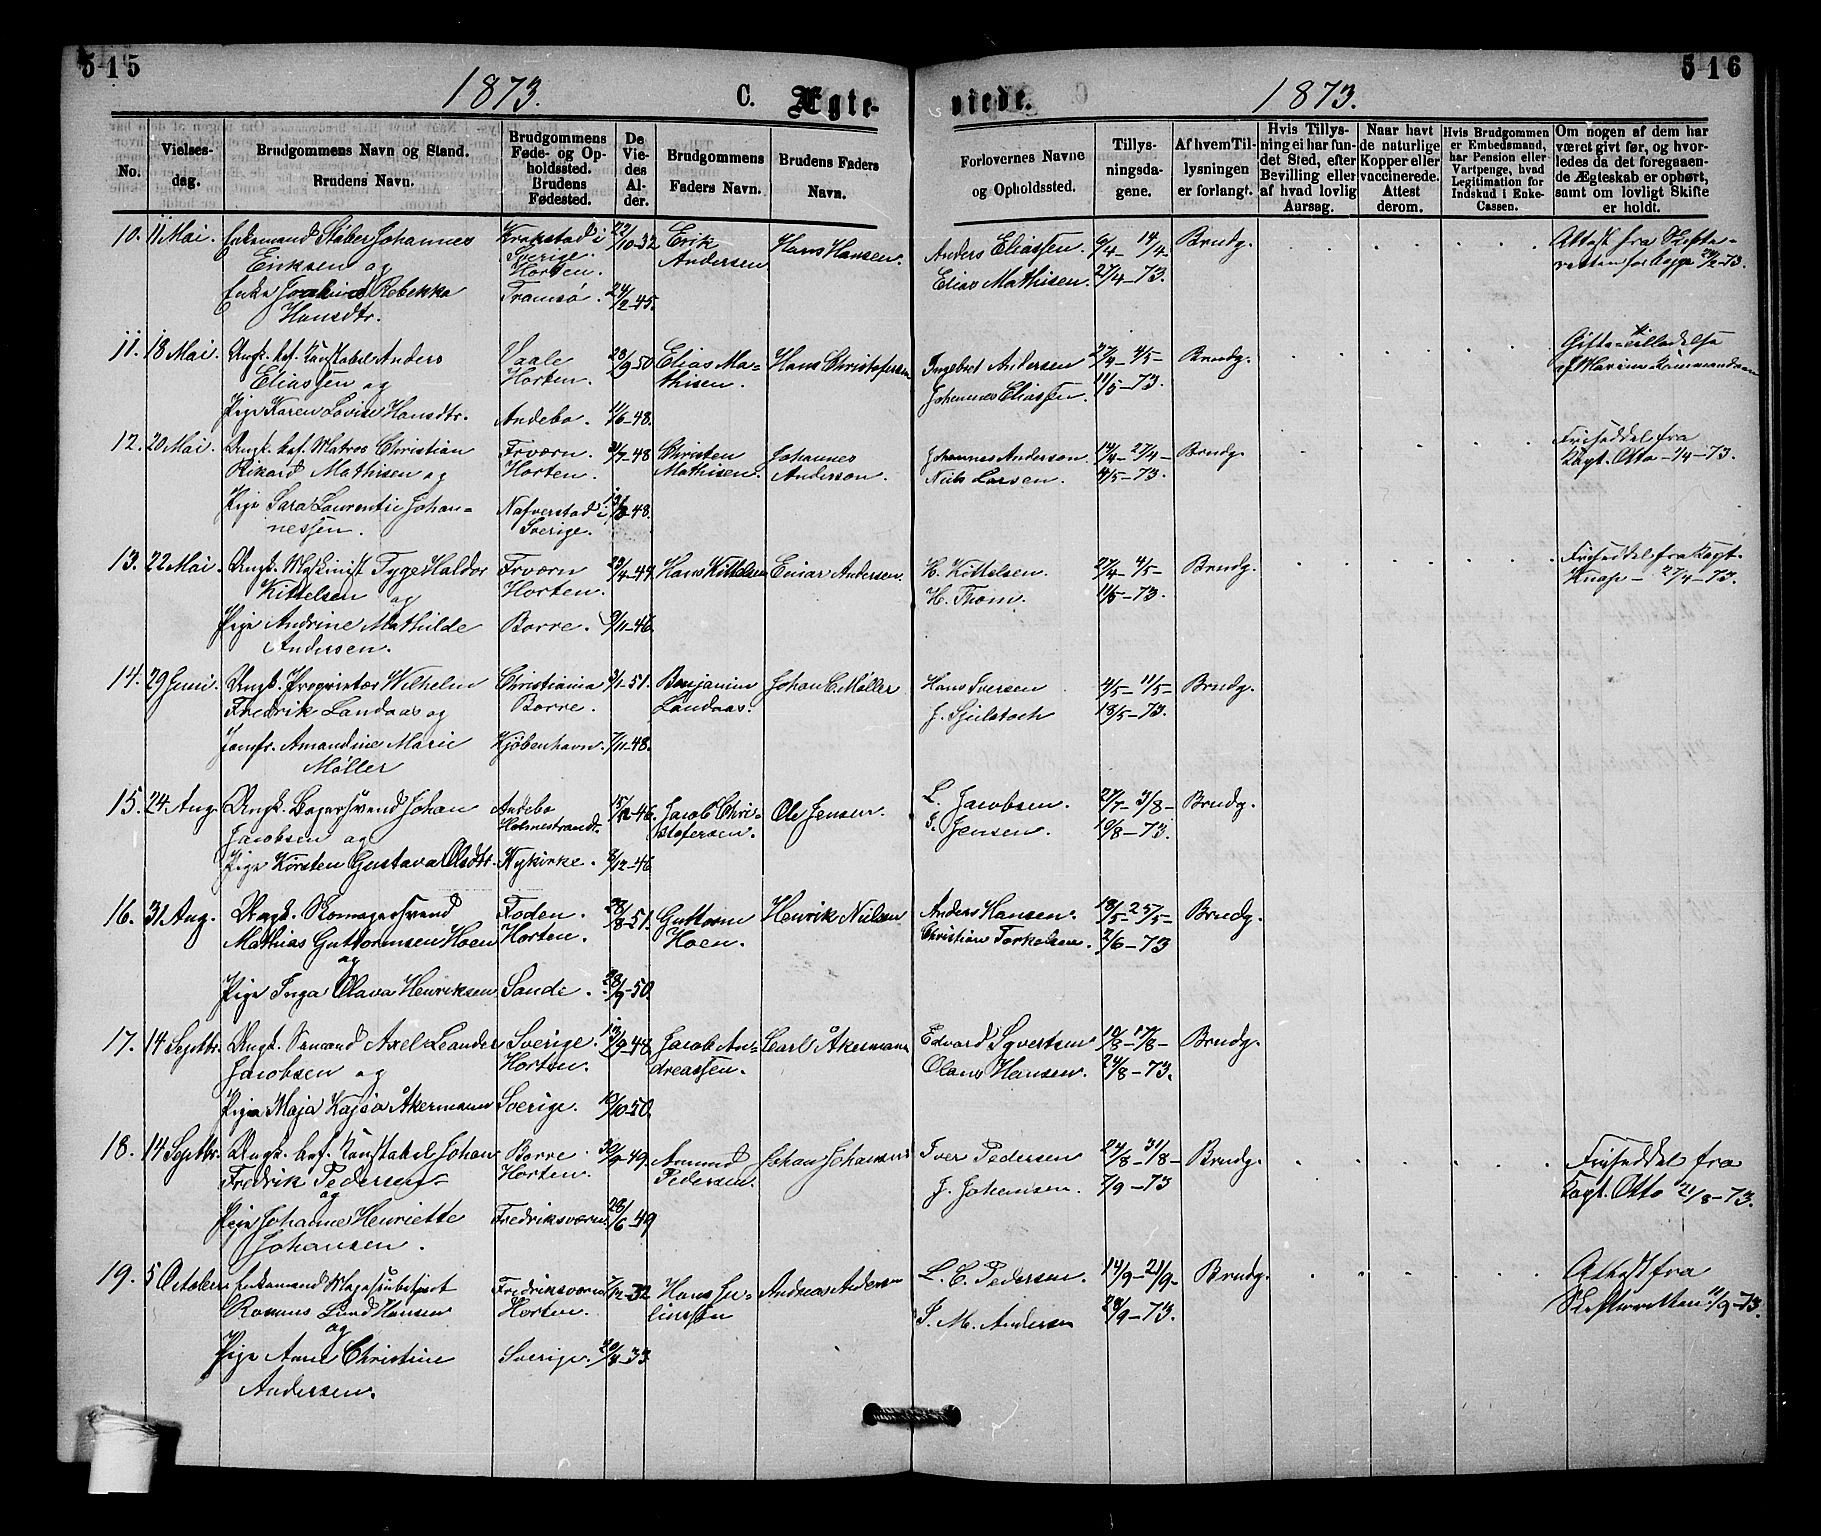 515
1873.
C. Ægte-
No.
Vielses-
dag.
Brudgommens Navn og Stand.
Brudens Navn.
Brudgommens
Føde- og Op-
holdssted.
Brudens
Fødested.
De
Vie-
des
Al-
der.
Brudgommens
Faders Navn.
Brudens Faders
Navn.
10. 11 Mai. Enkemand Støber Johannes
Eriksen og
Enke Rebekka
Hansdtr.
Krokstad i
Sverige.
Horten.
Tromsø.
22/10-32
24/2-45.
Erik
Andersen
Hans Hansen.
11. 18 Mai. Ungk. Anders
Eliassen og
Pige Karen Lovise Hansdtr.
Vaale
Horten.
Andebo.
23/9-50
11/6-48.
Elias Ma-
thisen.
Hans Christofersen
12. 20 Mai. Ungk. Matros Christian
Rikard Mathisen og
Pige Sara Laurentie Johan-
nessen.
Frværn.
Horten.
Nafverstad i
Sverige.
31/7-48
Christen
Mathisen.
Johannes
Anderson.
13. 22 Mai. Ungk. Maskinist Tyge Haldor
Kittelsen og
Pige Andrine Mathilde
Andersen.
Frværn
Horten.
Borre.
9/11-46.
Hans Kittelsen
Einar Andersen.
14. 29 Juni. Ungk. Proprietær Wilhelm
Fredrik Landaas og
Jomfr. Amandine Marie
Møller
Christiania
Borre.
Kjøbenhavn.
9/1-51.
7/11-48.
Benjamin
Landaas.
Johan C. Møller
15. 24 Aug. Ungk. Bagersvend Johan
Jacobsen og
Pige Kirsten Gustava Olsdtr.
Andebo
Holmestrand.
Nykirke.
15/12-46.
8/12-46
Jacob Chri-
stofersen.
Ole Jensen.
16. 31 Aug. Ungk. Skomagersvend
Mathias Guttormsen Hoen
og
Pige Inga Olava Henriksen
Foden.
Horten.
Sande.
28/8-51.
28/9-50.
Guttorm
Hoen.
Henrik Nielsen
17. 14 Septbr. Ungk. Sømand Axel Leander
Jacobsen og
Pige Maja Kajsa Åkermann
Sverige.
Horten.
Sverige.
13/9-48
10/10-50.
Jacob An-
dreassen.
Carl Åkermann
18. 14 Septbr. Ungk. Johan
Fredrik Pedersen
og
Pige Johanne Henriette
Johansen.
Borre.
Horten.
Fredriksværn.
30/9-49.
28/6-49
Amund
Pedersen.
Johan Johansen
19. 5 October Enkemand
Rasmus Lund Hansen
og
Pige Anne Christine
Andersen.
Fredriksværn
Horten.
Sverige.
7/12-32
Hans Ju-
liussen
Andreas Andersen
516
1873.
viede.
Forlovernes Navne
og Opholdssted.
Tillys-
ningsda-
gene.
Af hvem Til-
lysningen
er forlangt.
Hvis Tillys-
ning ei har fun-
det Sted, efter
Bevilling eller
af hvad lovlig
Aarsag.
Naar havt
de naturlige
Kopper eller
vaccinerede.
Attest
derom.
Hvis Brudgommen
er Embedsmand,
har Pension eller
Vartpenge, hvad
Legitimation for
Indskud i Enke-
Cassen.
Om nogen af dem har
været givt før, og hvor-
ledes da det foregaaen-
de Ægteskab er ophørt,
samt om lovligt Skifte
er holdt.
Anders Eliassen.
Elias Mathisen.
6/4- 14/4-
27/4-73.
Brudg.
Attest fra Skifte-
retten for begge 24/2-73.
Ingebret Andersen
Johannes Eliassen.
27/4- 4/5-
11/5-73.
Brudg.
Gifte-tilladelse
af Marine-Kommandoen
Johannes Anderson.
Niels Larsen.
14/4- 27/4-
4/5-73.
Brudg.
Friseddel fra
Kapt. Otto
H. Kittelsen.
H. Thom.
27/4- 4/5-
11/5-73.
Brudg.
Friseddel fra Kapt.
Knap - 27/4-73.
Hans Iversen
4/5- 11/5-
18/5-73.
Brudg.
L. Jacobsen.
Jensen.
27/7- 3/8-
10/8-73.
Brudg.
Anders Hansen.
Christian Torkelsen.
18/5- 25/5-
2/6-73
Brudg.
Edvard Syvertsen
Olaus Hansen.
10/8- 17/8-
24/8-73.
Brudg.
Iver Pedersen
J. Johansen.
24/8- 31/8-
7/9-73
Brudg.
Friseddel fra
Kapt. Otto 21/8-73.
L. C. Pedersen.
S. M. Andersen
14/9- 21/9-
28/9-73.
Brudg.
Attest fra
Skifteretten 11/9-73.